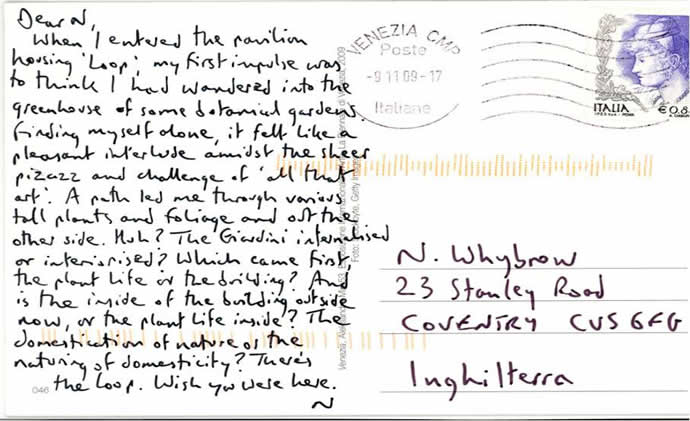 Dear N,
When I entered the pavilion
housing 'Loop', my first impulse was
to think I had wandered into the
greenhouse of some botanical gardens.
Finding myself alone, it felt like a
pleasant interlude amidst the sheer
pizazz and challenge of 'all that
art'. A path led me through various
tall plants and foliage and out the
other side. Huh? The Giardini internalised
or interiorised? Which came first,
the plant life or the building? And
is the inside of the building outside
now, or the plant life inside? The
domestication of nature or the
naturing of domesticity? There's
the loop. Wish you were here.
N
046
VENEZIA CMP
Poste
-9 11 09-17
Italiane
ITALIA
€0,6
N. Whybrow
23 Stanley Road
COVENTRY CV5 6FG
Inghilterra